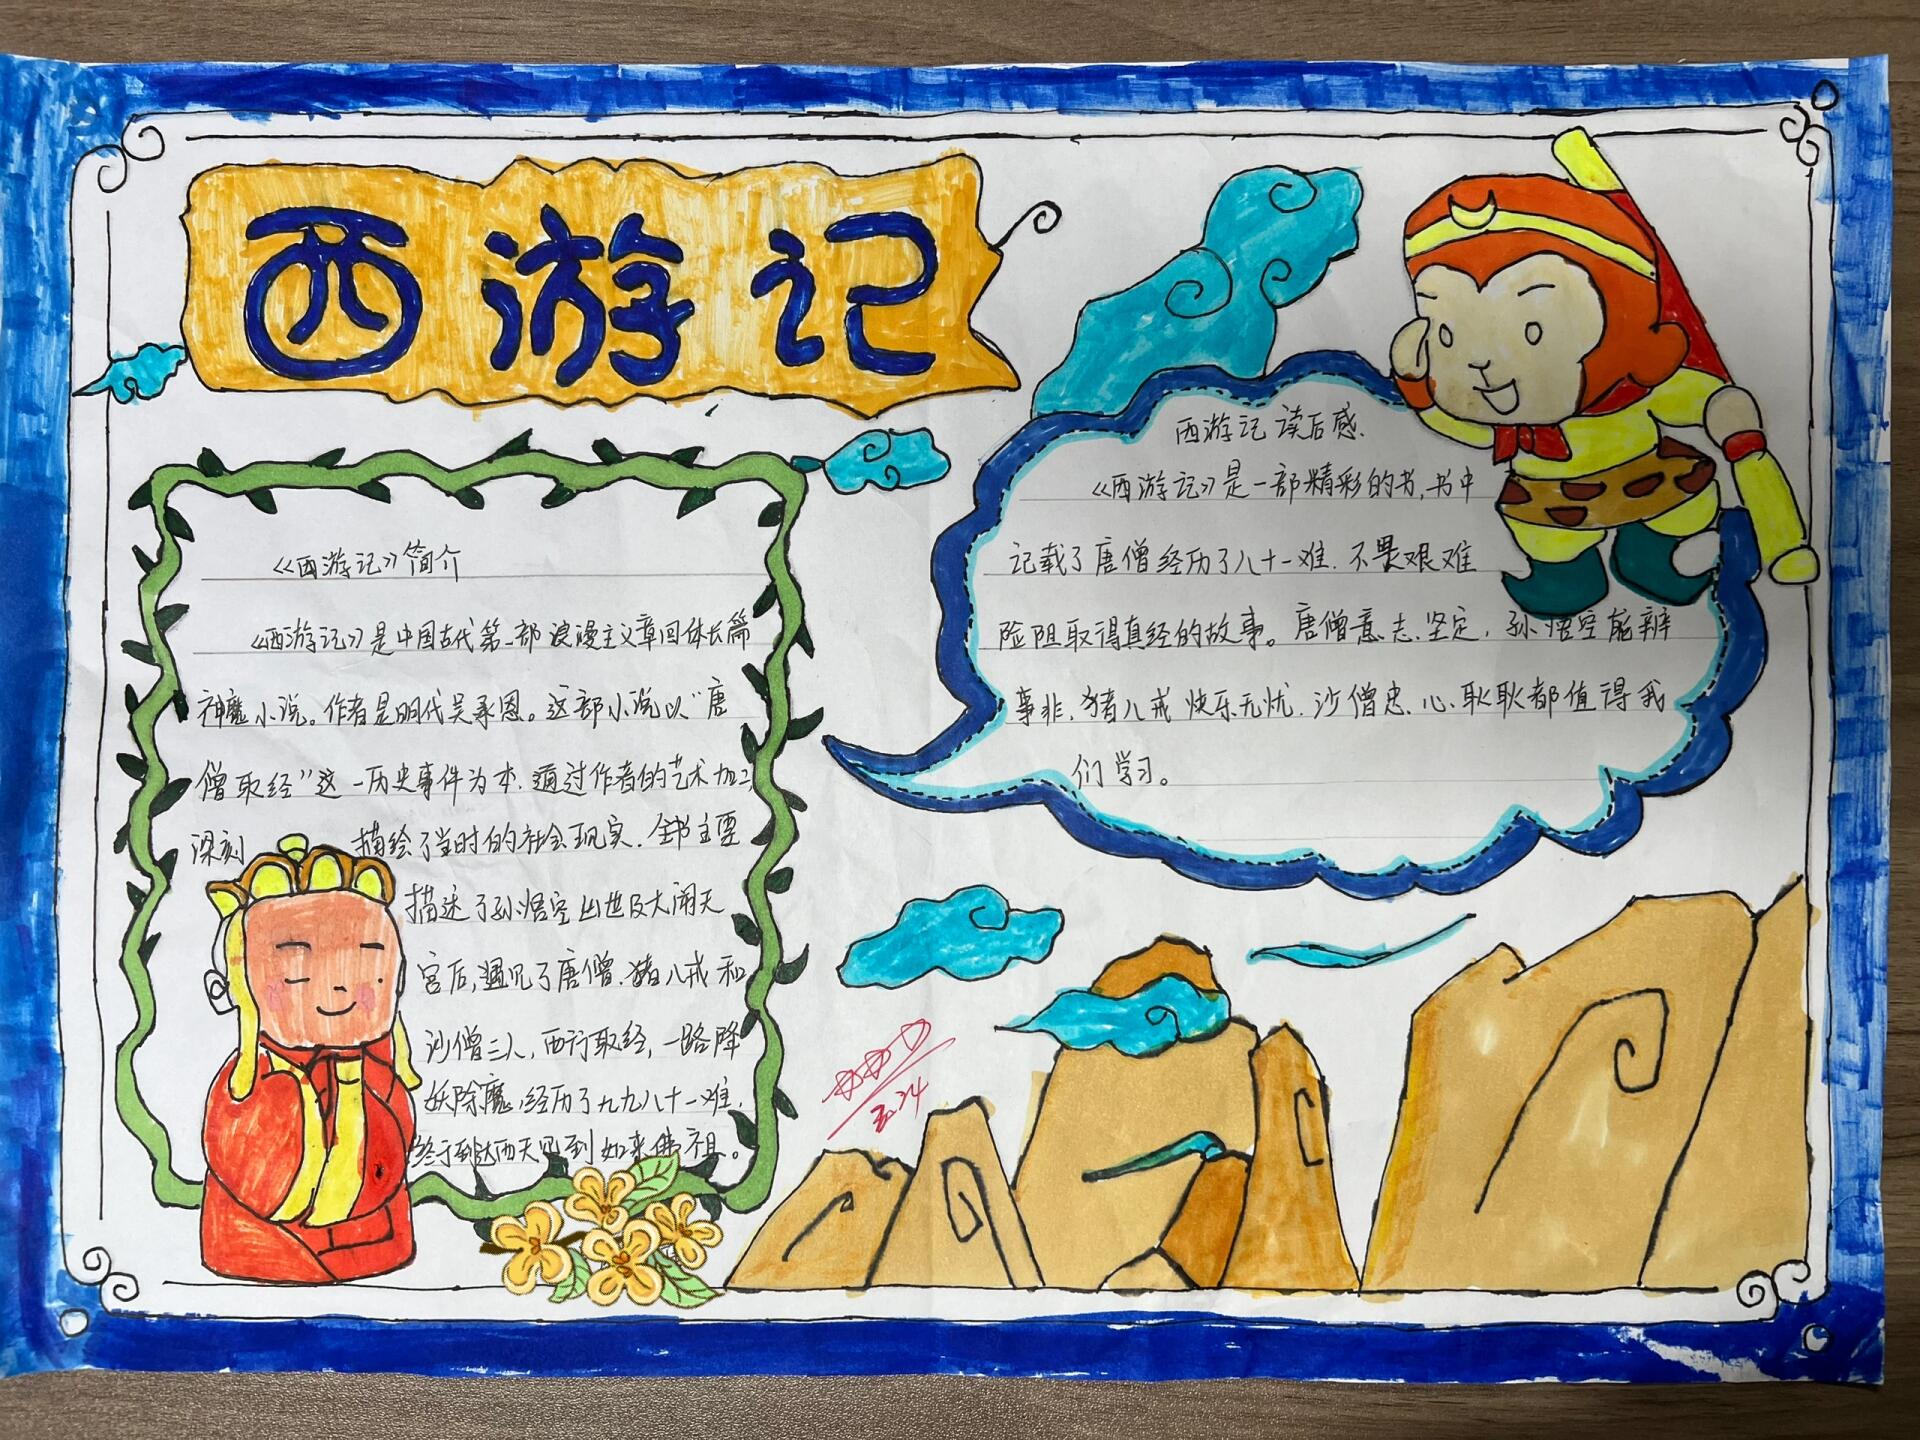 西游记
《西游记》简介
《西游记》是中国古代第一部浪漫主义章回体长篇
神魔小说。作者是明代吴承恩。这部小说以“唐
僧取经”这一历史事件为本.通过作者的艺术加工,
深刻 描绘了当时的社会现实.全书主要
描述了孙悟空出世及大闹天
宫后,遇见了唐僧.猪八戒和
沙僧三人,西行取经,一路降
妖除魔,经历了九九八十一难,
终于到达西天见到如来佛祖。
西游记读后感.
《西游记》是一部精彩的书,书中
记载了唐僧经历了八十一难.不畏艰难
险阻取得真经的故事。唐僧意志坚定,孙悟空能辨
事非.猪八戒快乐无忧.沙僧忠.心.耿耿都值得我
们学习。